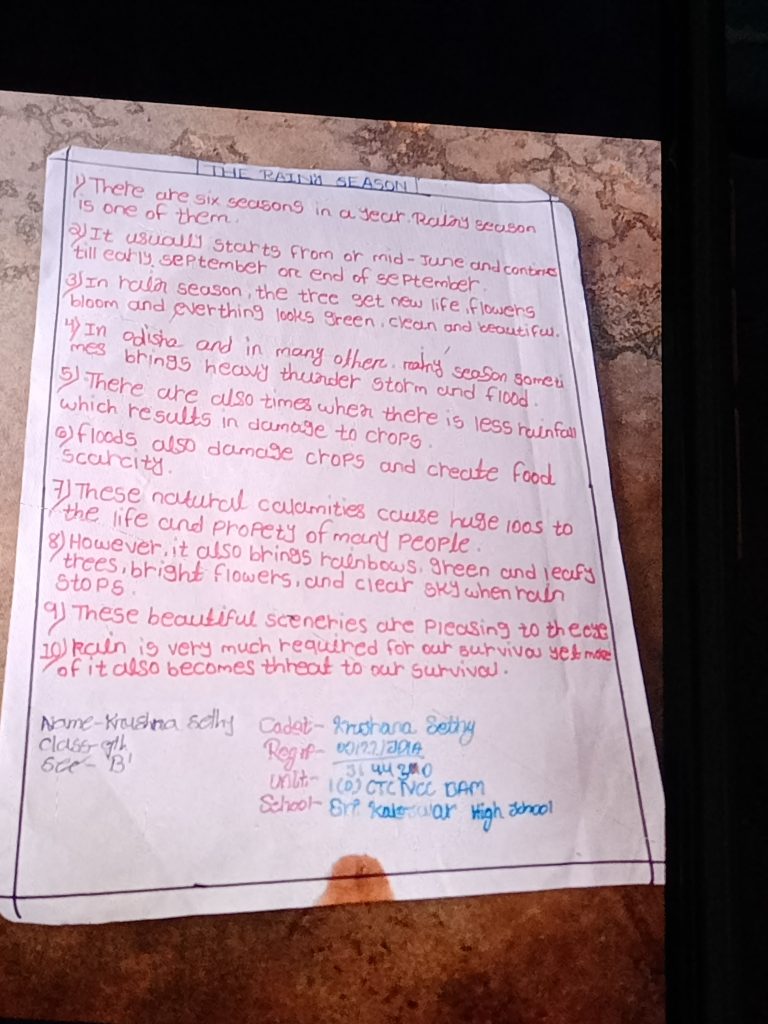 THE RAINY SEASON
1) There are six seasons in a year. Rainy season
is one of them.
2) It usually starts from or mid-June and continue
till early september or end of september.
3) In rain season, the tree get new life, flowers
bloom and everthing looks green, clean and beautiful.
4) In odisha and in many other. rainy season someti
mes brings heavy thunder storm and flood.
5) There are also times when there is less rainfall
which results in damage to crops.
6) floods also damage crops and create food
scarcity.
7) These natural calamities cause huge loos to
the life and propety of many people.
8) However, it also brings rainbows, green and leafy
trees, bright flowers, and clear sky when rain
stops.
9) These beautiful sceneries are pleasing to the eye
10) Rain is very much required for our survival yet more
of it also becomes threat to our survival.
Name- Sethy
Class- 9th
Sec- 'B'
Cadet- Sethy
Reg
Unit- CTC NCC
School- Sri High School